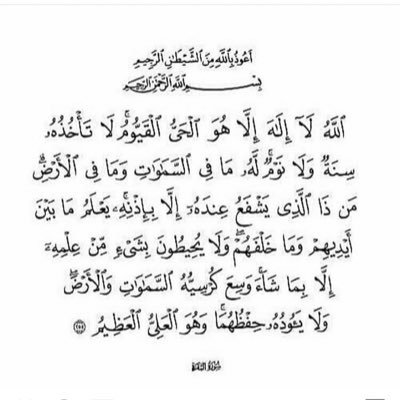 أَعُوذُ بِاللَّهِ مِنَ الشَّيْطَانِ الرَّجِيمِ
بِسْمِ اللَّهِ الرَّحْمَٰنِ الرَّحِيمِ
اللَّهُ لَآ إِلَٰهَ إِلَّا هُوَ الْحَيُّ الْقَيُّومُ ۚ لَا تَأْخُذُهُۥ
سِنَةٌ وَلَا نَوْمٌ ۚ لَّهُۥ مَا فِي السَّمَٰوَٰتِ وَمَا فِي الْأَرْضِ ۗ
مَن ذَا الَّذِي يَشْفَعُ عِندَهُۥٓ إِلَّا بِإِذْنِهِۦ ۚ يَعْلَمُ مَا بَيْنَ
أَيْدِيهِمْ وَمَا خَلْفَهُمْ ۖ وَلَا يُحِيطُونَ بِشَيْءٍ مِّنْ عِلْمِهِۦٓ
إِلَّا بِمَا شَآءَ ۚ وَسِعَ كُرْسِيُّهُ السَّمَٰوَٰتِ وَالْأَرْضَ ۖ
وَلَا يَـُٔودُهُۥ حِفْظُهُمَا ۚ وَهُوَ الْعَلِيُّ الْعَظِيمُ ٢٥٥
سُورَةُ الْبَقَرَة